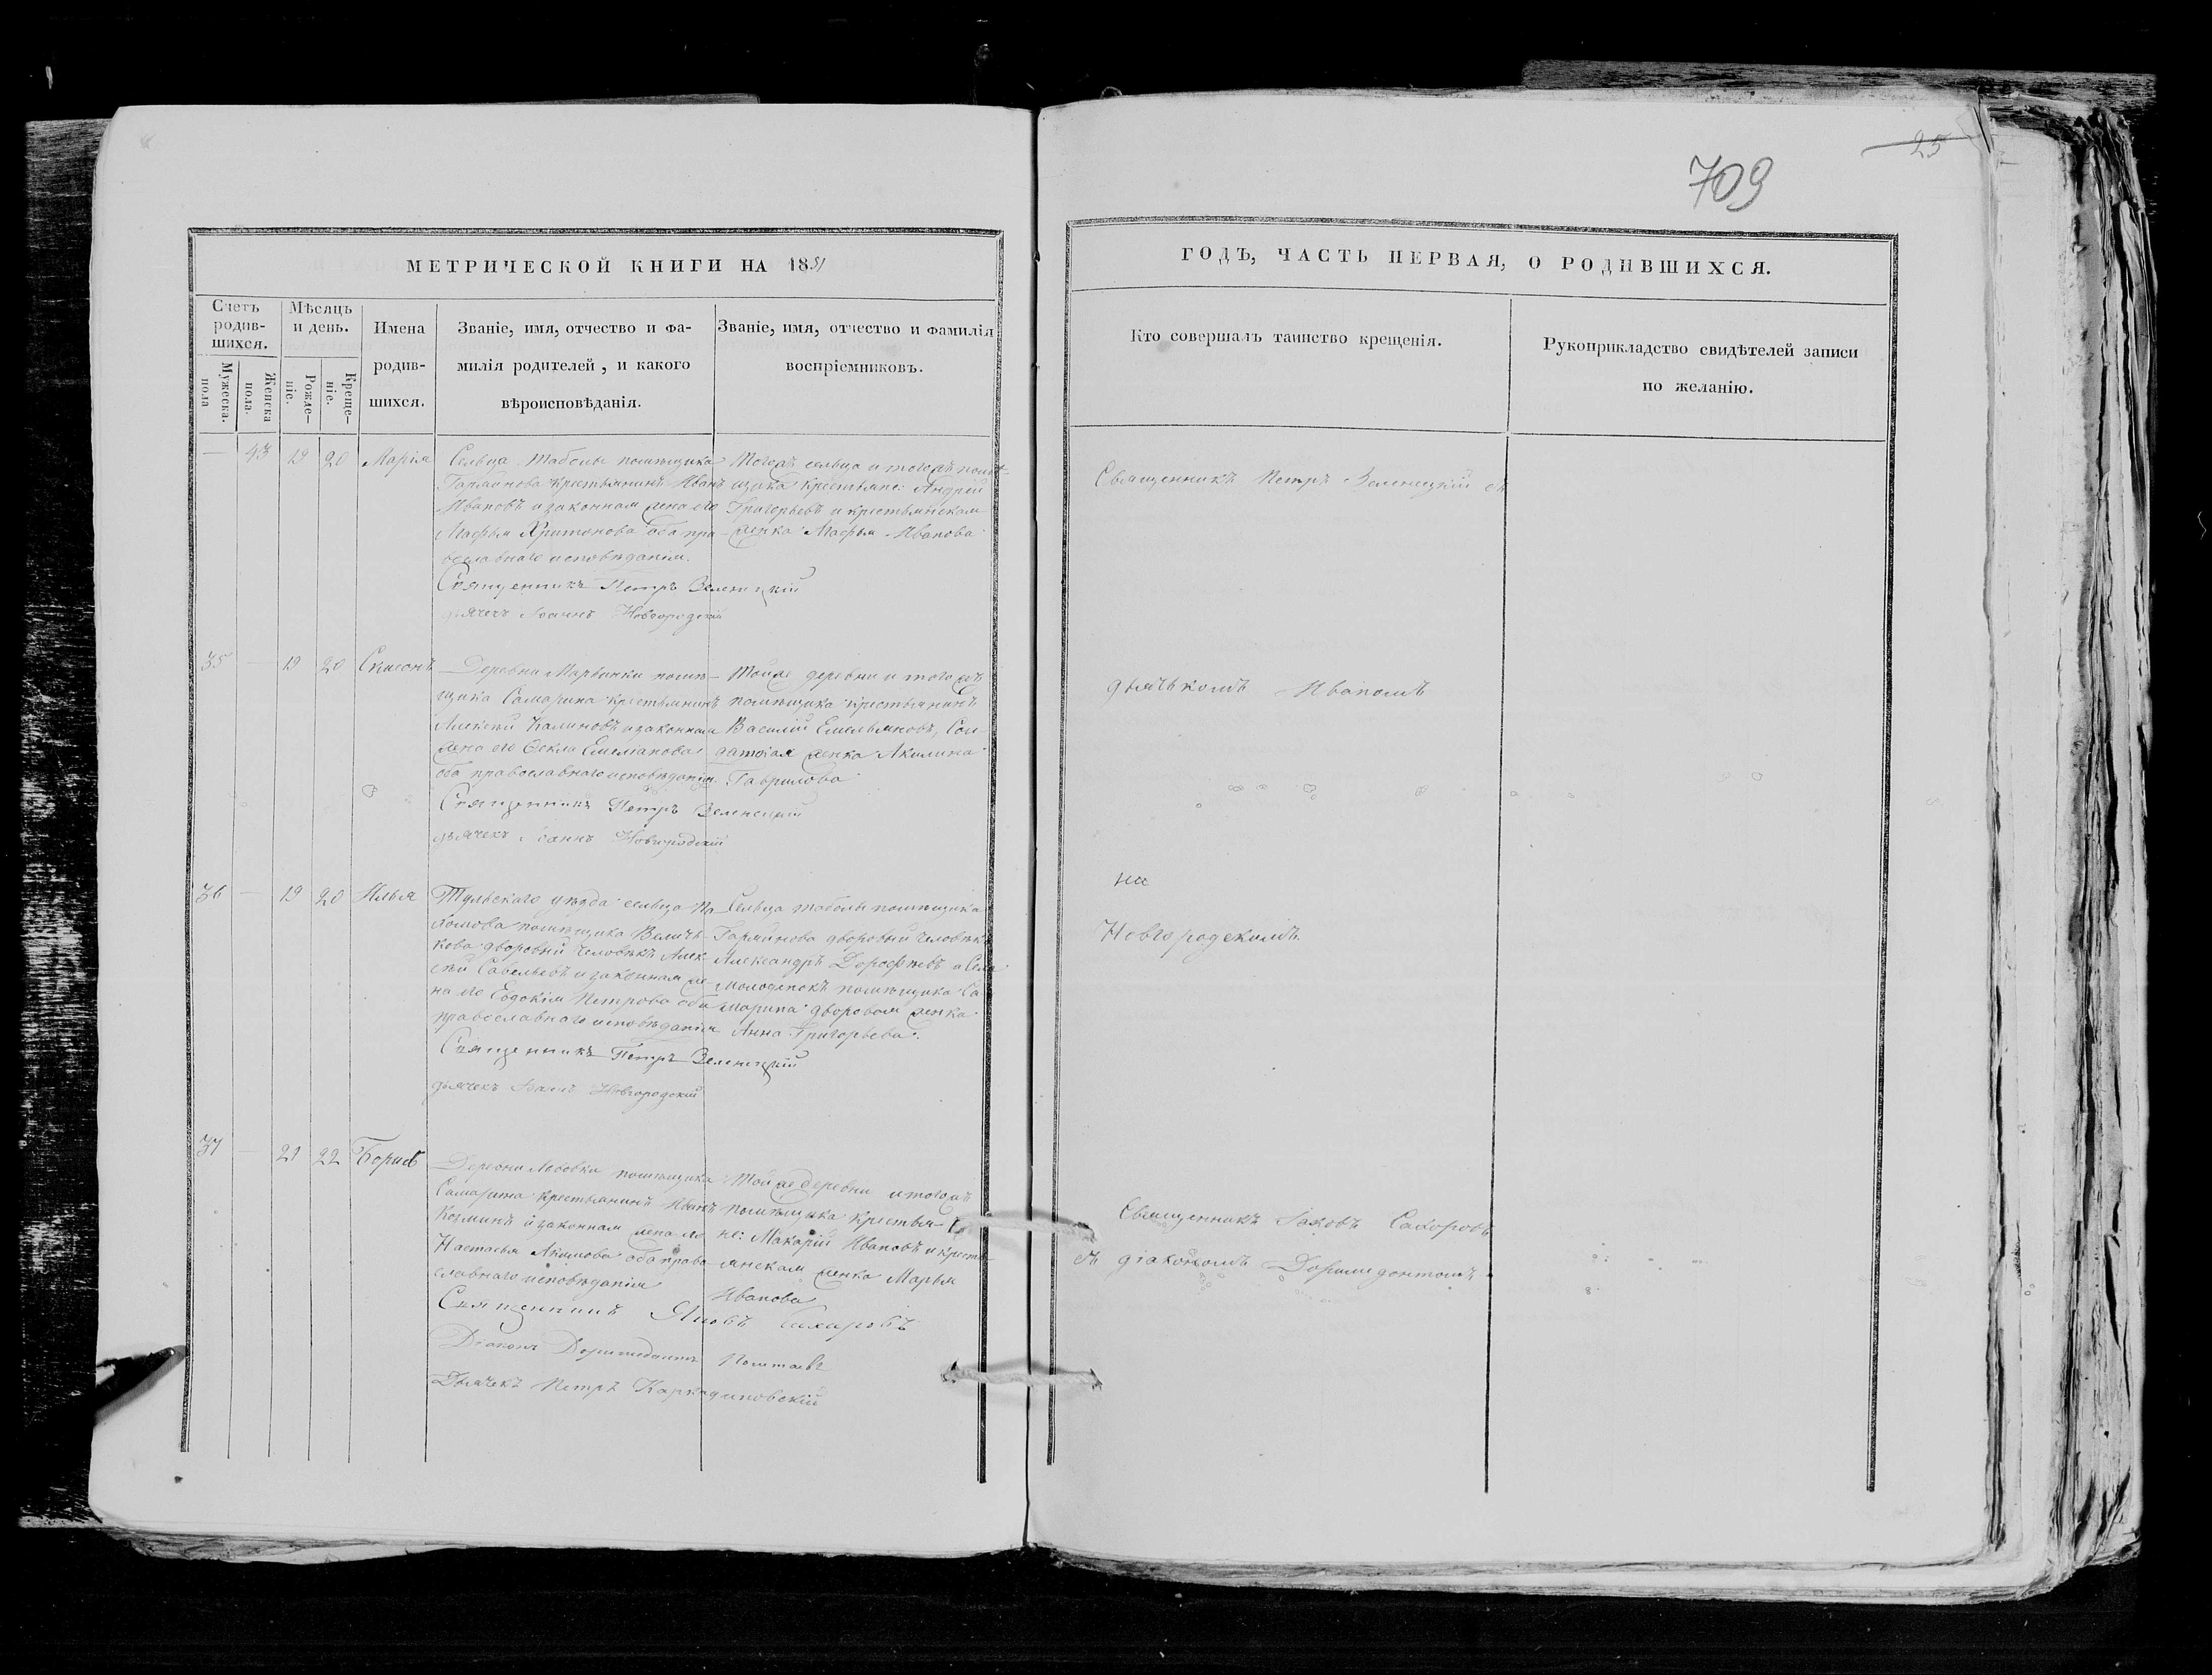 709
25
МЕТРИЧЕСКОЙ КНИГИ НА 1851
ГОДЪ, ЧАСТЬ ПЕРВАЯ, О РОДИВШИХСЯ.
Счетъ родившихся.
Мужеска пола
Женска пола.
Мѣсяцъ и день.
Рожденіе.
Крещеніе.
Имена
родив-
шихся.
Званіе, имя, отчество и фа-
милія родителей, и какого
вѣроисповѣданія.
Званіе, имя, отчество и фамилія
воспріемниковъ.
Кто совершалъ таинство крещенія.
Рукоприкладство свидѣтелей записи
по желанію.
— 43 19 20 Марія
Сельца Таболы помѣщика
крестьянинъ Иванъ
Ивановъ и законная жена его
Марѳья Харитонова оба пра-
вославнаго исповѣданія.
Священникъ Петръ Зеленецкій
дьячекъ Іоаннъ Новгородскій
Тогожъ сельца и тогожъ помѣ-
щика крестьяне: Андрей
Григорьевъ и крестьянская
женка Марѳья Иванова
Священникъ Петръ Зеленецкій съ
35 — 19 20 Симеонъ
Деревни помѣ-
щика Самарина крестьянинъ
Алексѣй Калиновъ и законная
жена его Ѳекла Емеліанова
оба православнаго исповѣданія.
Священникъ Петръ Зеленецкій
дьячекъ Іоаннъ Новгородскій
Тойже деревни и тогожъ
помѣщика крестьянинъ
Василій Емельяновъ, Сол-
датская женка Акилина
Гаврилова
дьячькомъ Иваномъ
36 — 19 20 Илья
Тульскаго уѣзда сельца Па-
хомова помѣщика Велич-
кова дворовый человѣкъ Алек-
сѣй Савельевъ и законная же-
на его Евдокія Петрова оба
православнаго исповѣданія
Священникъ Петръ Зеленецкій
дьячекъ Іоаннъ Новгородскій
Сельца Таболы помѣщика
дворовый человѣкъ
Александръ Дороѳѣевъ и Села
Молоденокъ помѣщика Са-
марина дворовая женка
Анна Григорьева.
Новгородскимъ.
37 — 21 22 Борисъ
Деревни помѣщика
Самарина крестьянинъ Иванъ
Козминъ и законная жена его
Настасья Акимова оба право-
славнаго исповѣданія
Священникъ Яковъ Сахаровъ
Діаконъ Доримедонтъ
Дьячекъ Петръ
Тойже деревни и тогожъ
помѣщика крестья-
не: Макарій Ивановъ и кресть-
янская женка Марья
Иванова
Священникъ Іаковъ Сахаровъ
съ діакономъ Доримедонтомъ